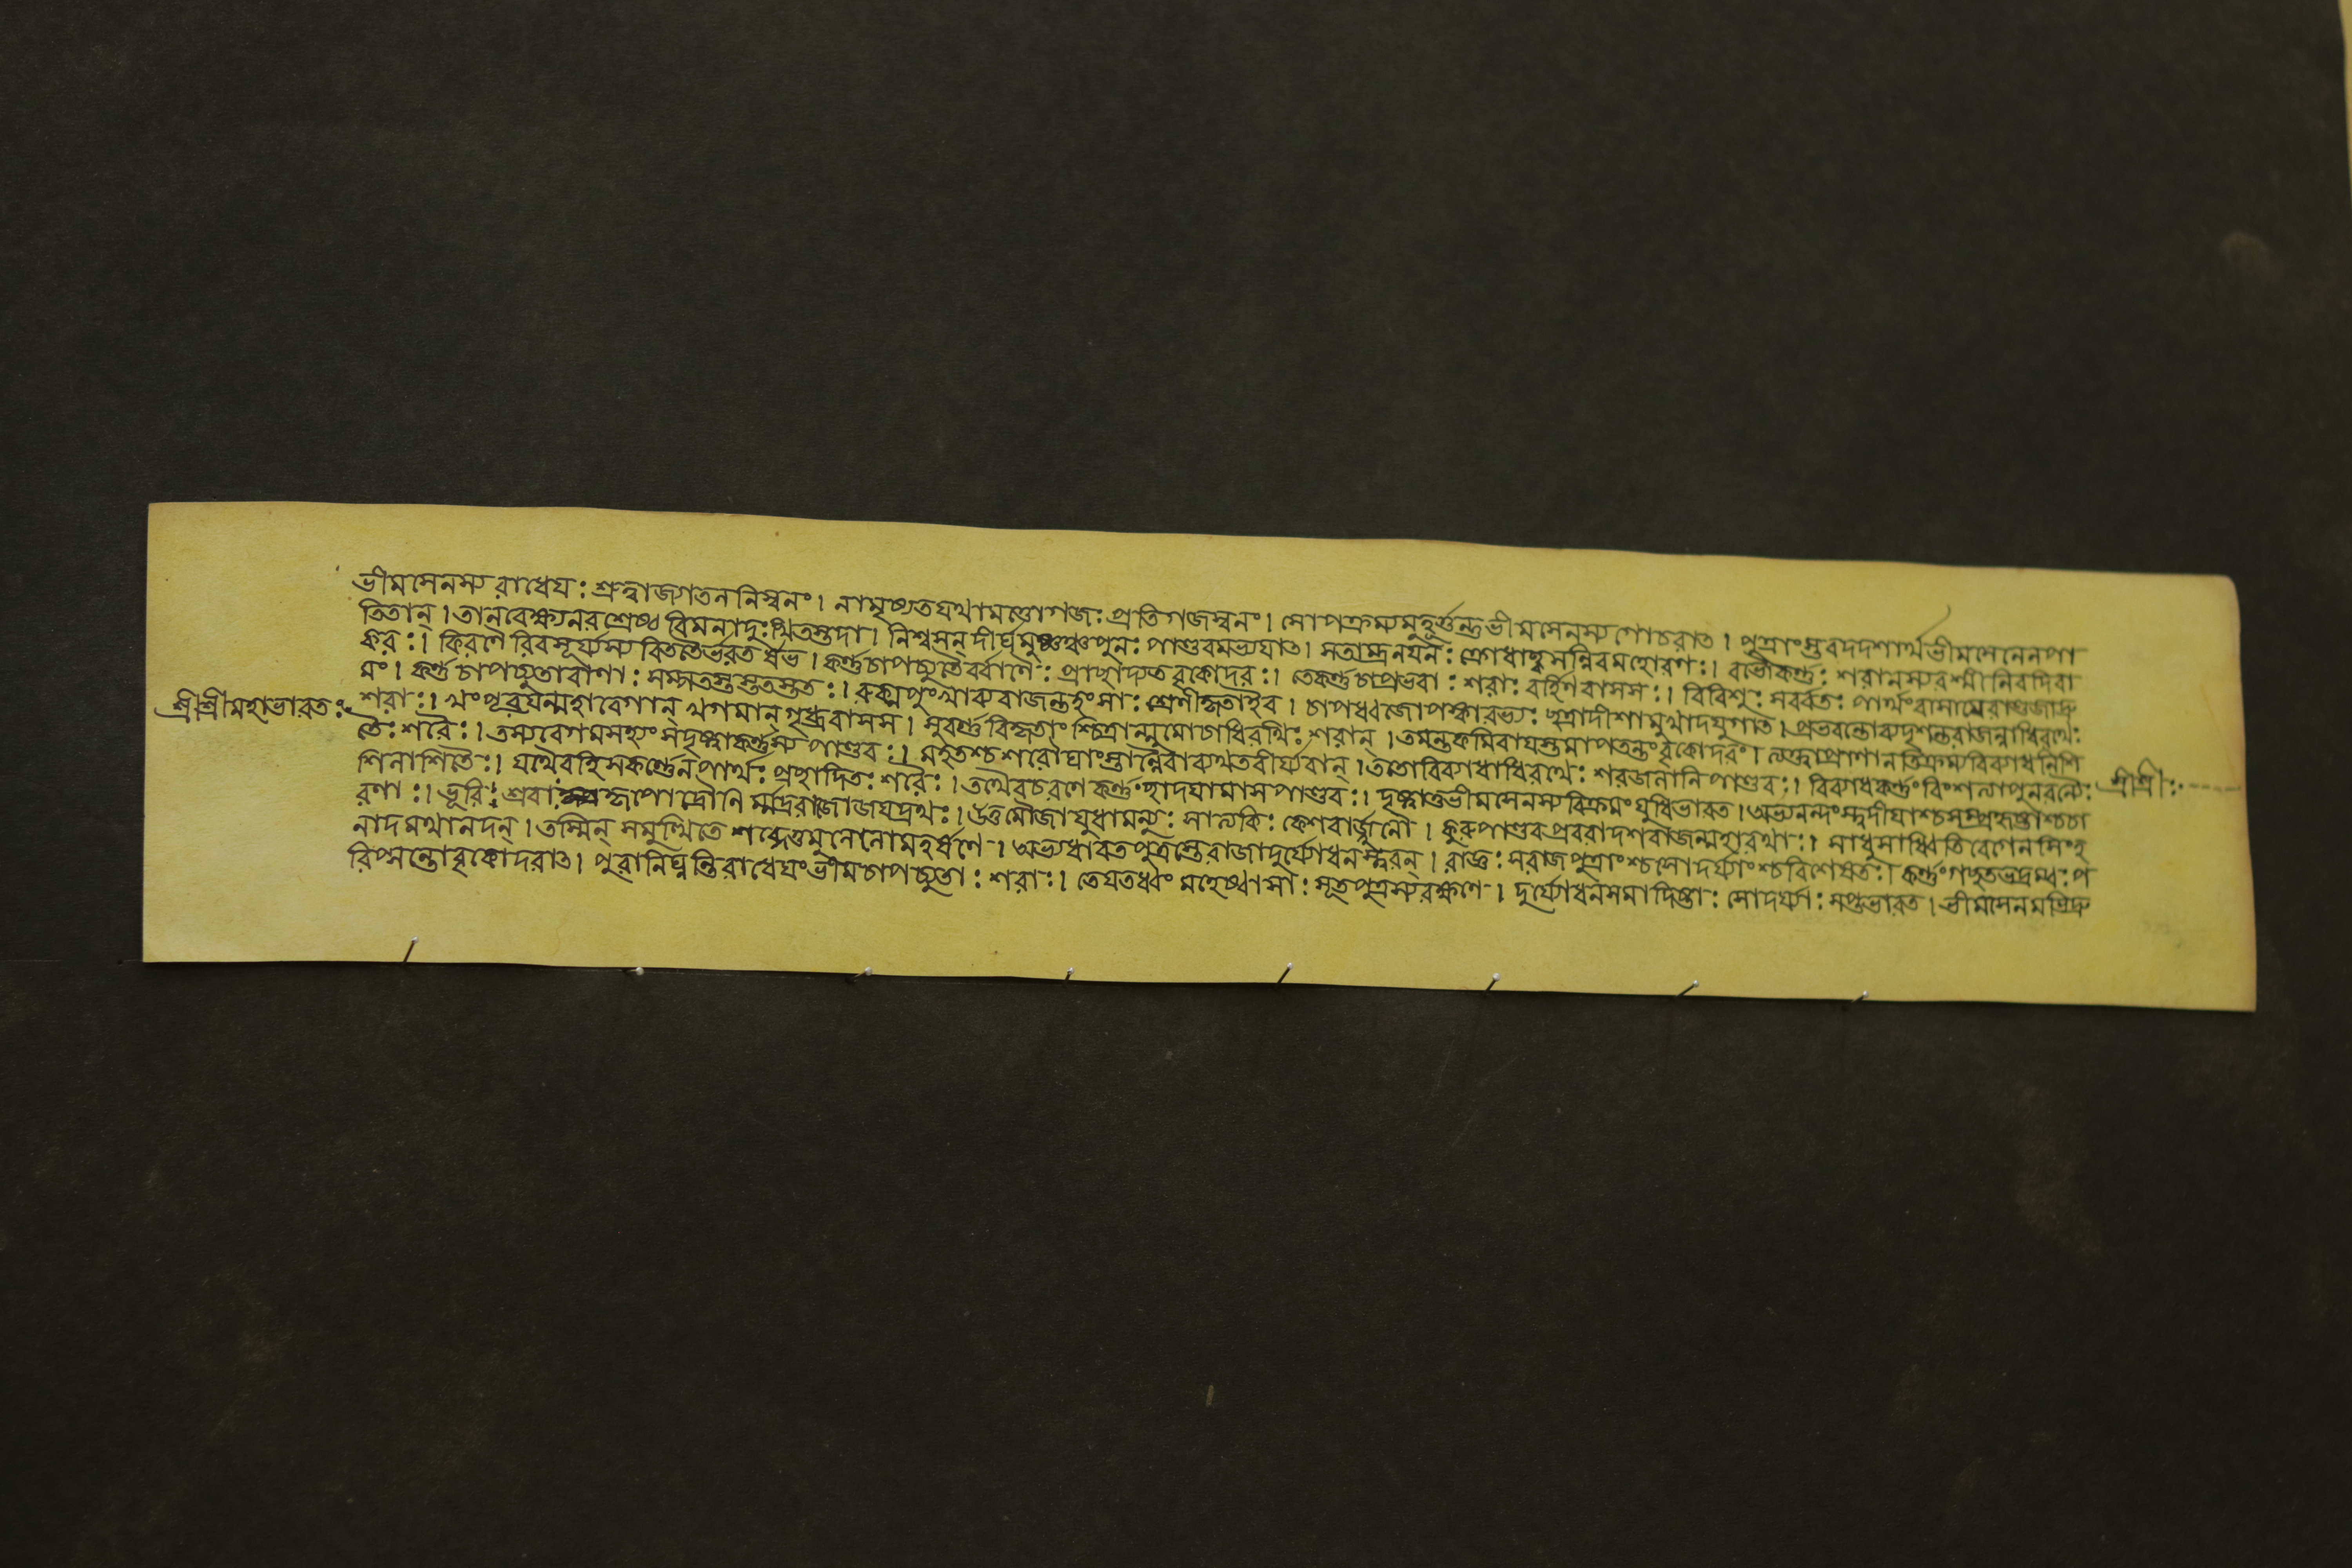 ভীমসেনস্য রাধেযঃ শ্রুত্বাজগতননিস্বনং। নামৃষ্যতযথামত্তোগজঃ প্রতিগজস্বনং। সোপক্রম্যমুহূর্ত্তন্তুভীমসেনস্য গোচরাত। পুত্রাংস্তবদদশার্থভীমসেনেনপা
তিতান্। তানবেক্ষ্যনরশ্রেষ্ঠ বিমনাদুঃখিতস্তদা। নিশ্বসন্ দীর্ঘমুষ্ণঞ্চপুনঃ পাণ্ডবমভ্যযাত। সতাম্রনযনঃ ক্রোধাচ্ছ্বসন্নিবমহোরগঃ। বভৌকর্ণ্ণঃ শরানস্যরশ্মীনিবদিবা
করঃ। কিরণৈরিবসূর্য্যস্য বিততৈর্ভরতর্ষভ। কর্ণ্ণচাপচ্যুতৈর্ব্বাণৈঃ প্রাচ্ছাদ্যতবৃকোদরঃ। তেকর্ণ্ণচাপপ্রভবাঃ শরাঃ বর্হিণবাসসঃ। বিবিশুঃ সর্ব্বতঃ পার্থংবাসাযেবাণ্ডজাদ্রু
মং। কর্ণ্ণচাপচ্যুতাবাণাঃ সম্পতন্তস্ততস্ততঃ। রুক্মপুংখাব্যরাজন্তহংসাঃ শ্রেণীকৃতাইব। চাপধ্বজোপস্কারভ্যঃ ছত্রাদীশামুখাদযুগাত। প্রভবন্তোব্যদৃশন্তরাজন্নাধিরথেঃ
শ্রীশ্রীমহাভারতঃ শরাঃ। খংপূরযন্মহাবেগান্ খগমান্ গৃধ্রবাসস। সুবর্ণ্ণবিকৃতাংশ্চিত্রান্মুমোচাধিরথিঃ শরান্। তমন্তকমিবাযস্তমাপতন্তংবৃকোদরং। ত্যক্ত্বাপ্রাণানতিক্রম্যবিব্যাধনিশি
তৈঃ শরৈঃ। তস্যবেগমসহ্যং সদৃষ্ট্বাকর্ণ্ণস্য পাণ্ডবঃ। মহতশ্চ শরৌঘাংস্তান্নৈবাব্যথতবীর্য্যবান্। ততোবিব্যাধাধিরথেঃ শরজনানিপাণ্ডবঃ। বিব্যাধকর্ণ্ণংবিংশত্যাপুনরন্যৈঃ শ্রীশ্রীঃ
শিনাশিতৈঃ। যথৈবহিসকর্ণ্ণেন পার্থঃ প্রচ্ছাদিতঃ শরৈঃ। তথৈবচরণে কর্ণ্ণংছাদযামাসপাণ্ডবঃ। দৃষ্ট্বাতুভীমসেনস্যবিক্রমংযুধিভারত। অভ্যনন্দংস্ত্বদীযাশ্চসম্প্রহৃষ্টাশ্চচা
রণাঃ। ভূরিঃশ্রবাঃ কৃপোদ্রৌণি র্ম্মদ্ররাজোজযদ্রথঃ। উত্তমৌজাযুধামন্যুঃ সাত্যকিঃ কেশবার্জ্জুনৌ। কুরুপাণ্ডবপ্রবরাদশরাজন্মহারথাঃ। সাধুসাধ্বিতিবেগেনসিংহ
নাদমথানদন্। তস্মিন্ সমুত্থিতে শব্দেতুমুলেলোমহর্ষণে। অভ্যধাবতপুত্রস্তেরাজাদুর্য্যোধনস্ত্বরন্। রাজ্ঞঃ সরাজপুত্রাংশ্চসোদর্য্যাংশ্চবিশেষতঃ। কর্ণ্ণংগচ্ছতভদ্রম্বঃ প
রিপ্সন্তোবৃকোদরাত। পুরানিঘ্নন্তিরাধেযংভীমচাপচ্যুতাঃ শরাঃ। তেযতধ্বং মহেষ্বাসাঃ সূতপুত্রস্যরক্ষণে। দুর্য্যোধনসমাদিষ্টাঃ সোদর্য্যাঃ সপ্তভারত। ভীমসেনমভিদ্রু